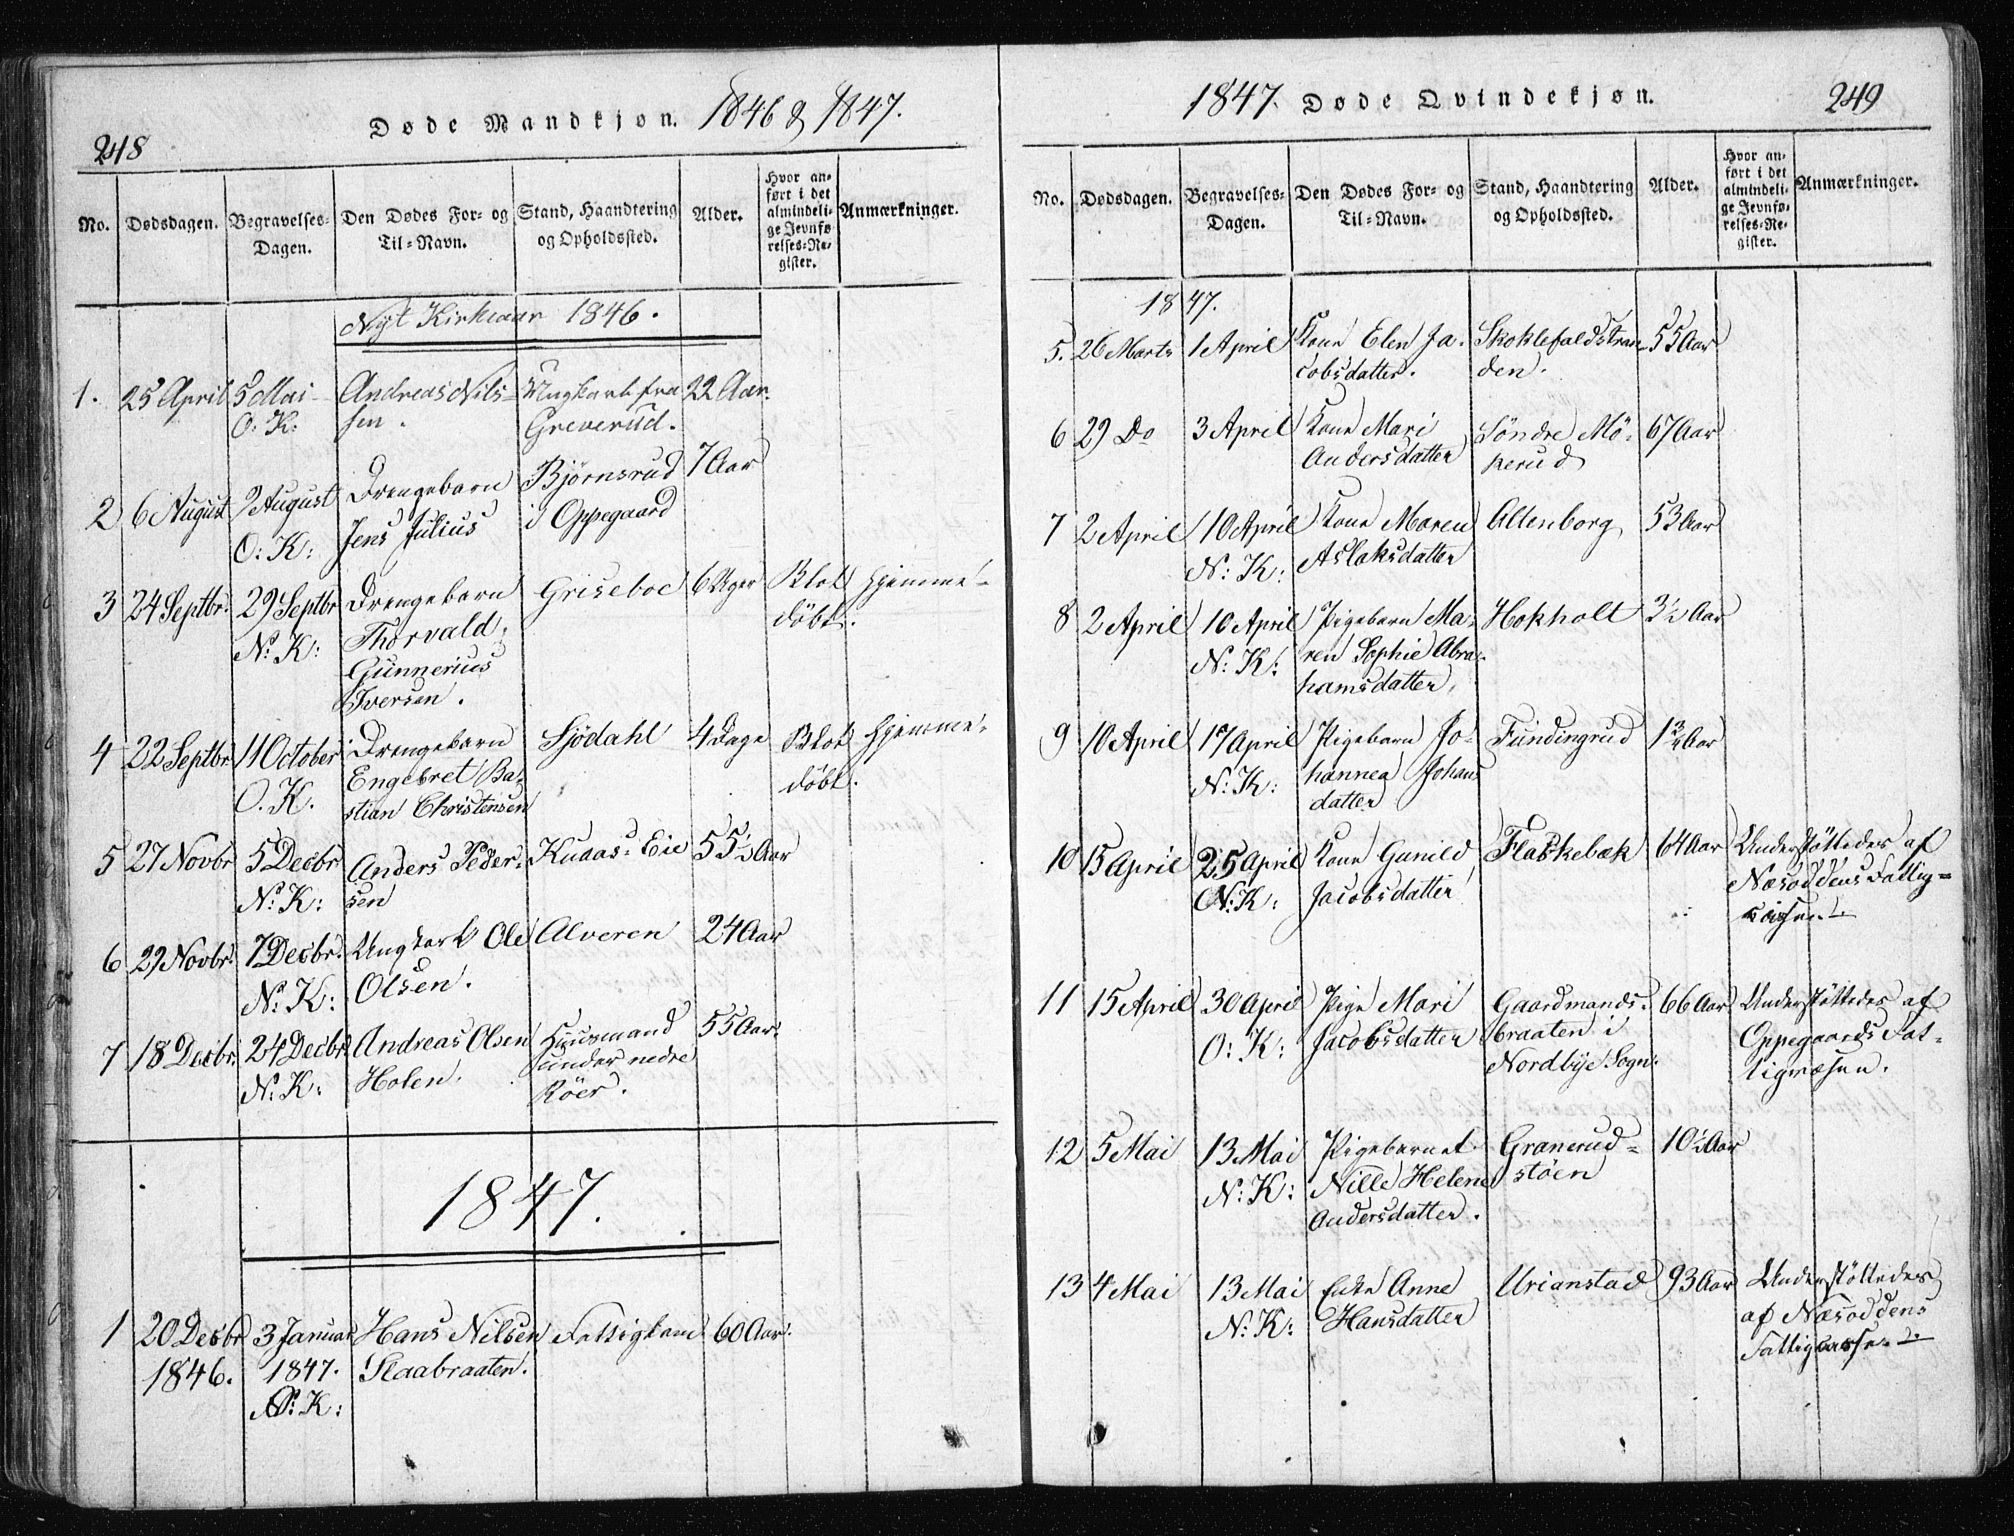 248
Døde Mandkjøn. 1846 & 1847.
No. Dødsdagen. Begravelses-Dagen. Den Dødes For- og Til-Navn. Stand, Haandtering og Opholdssted. Alder. Hvor anført i det almindelige Jevnførelses-Register. Anmærkninger.
Nyt Kirkeaar 1846.
1. 25 April 5 Mai Andreas Nils- Ungkarl fra 22 Aar.
O. K: sen. Greverud.
2 6 August 9 August Drengebarn Bjørnsrud 7 Aar
O: K: Jens Julius i Oppegaard
3 24 Septbr. 29 Septbr Drengebarn Griseboe 6 Uger Blot hjemme-
N: K: Thorvald døbt.
Gunnerius
Iversen.
4 22 Septbr. 11 October Drengebarn Sjödahl 4 Dage Blot hjemme-
O. K. Engebret Ba- døbt.
stian Christensen
5 27 Novbr 5 Decbr Anders Peder- Kudaas-Eie 55½ Aar
N: K: sen
6 29 Novbr. 7 Decbr. Ungkarl Ole Alveren 24 Aar
N: K: Olsen.
7 18 Decbr. 24 Decbr. Andreas Olsen Huusmand 55 Aar.
N: K: Holen. under nedre
Röer.
1847.
1 20 Decbr 3 Januar Hans Nilsen Fattiglem 60 Aar.
1846. 1847. Slaabraaten.
K:
249
1847. Døde Qvindekjøn.
No. Dødsdagen. Begravelses-Dagen. Den Dødes For- og Til-Navn. Stand, Haandtering og Opholdssted. Alder. Hvor anført i det almindelige Jevnførelses-Register. Anmærkninger.
1847.
5. 26 Marts 1 April Kone Elen Ja- Skoklefaldstran- 55 Aar
cobsdatter. den.
6 29 Do 3 April Kone Mari Söndre Mö- 67 Aar
Andersdatter kerud
7 2 April 10 April Kone Maren Altenborg 53 Aar
N: K: Aslaksdatter
8 2 April 10 April Pigebarn Ma- Hokholt 3½ Aar
N: K: ren Sophie Abra-
hamsdatter.
9 10 April 17 April Pigebarn Jo- Fundingrud 1¾ Aar
N: K: hannea Johans
datter
10 15 April 25 April Kone Gunild Flaskebæk 64 Aar Understøttedes af
N: K: Jacobsdatter Næsoddens Fattig-
casse.
11 15 April 30 April Pige Mari Gaardmands- 66 Aar Understøttedes af
O: K: Jacobsdatter braaten i Oppegaards Fat-
Nordbye Sogn. tigvæsen.
12 5 Mai 13 Mai Pigebarnet Granerud- 10½ Aar
N: K: Nille Helene stöen
Andersdatter.
13 4 Mai 13 Mai Enke Anne Urianstad 93 Aar Understøttedes
N: K: Hansdatter af Næsoddens
Fattigcasse.